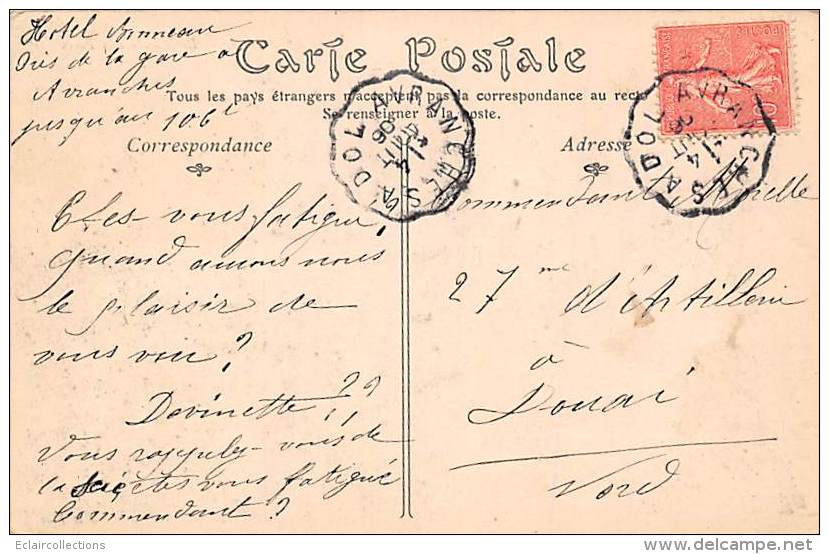 Hotel Bonneau
Près de la gare à
Avranches
jusqu'au 10 6
Carte Postale
Tous les pays étrangers n'acceptent pas la correspondance au recto
Se renseigner à la poste.
Correspondance
Adresse
AVRANCHES A DOL
AVRANCHES A DOL
Etes vous fatigué,
quand aurons nous
le plaisir de
vous voir?
Devinette??!!
Vous rappelez-vous de
la
êtes vous fatigué
Commendant?
Commendant
27 me d'Artillerie
à
Douai
Nord
Eclaircollections
delcampe.net